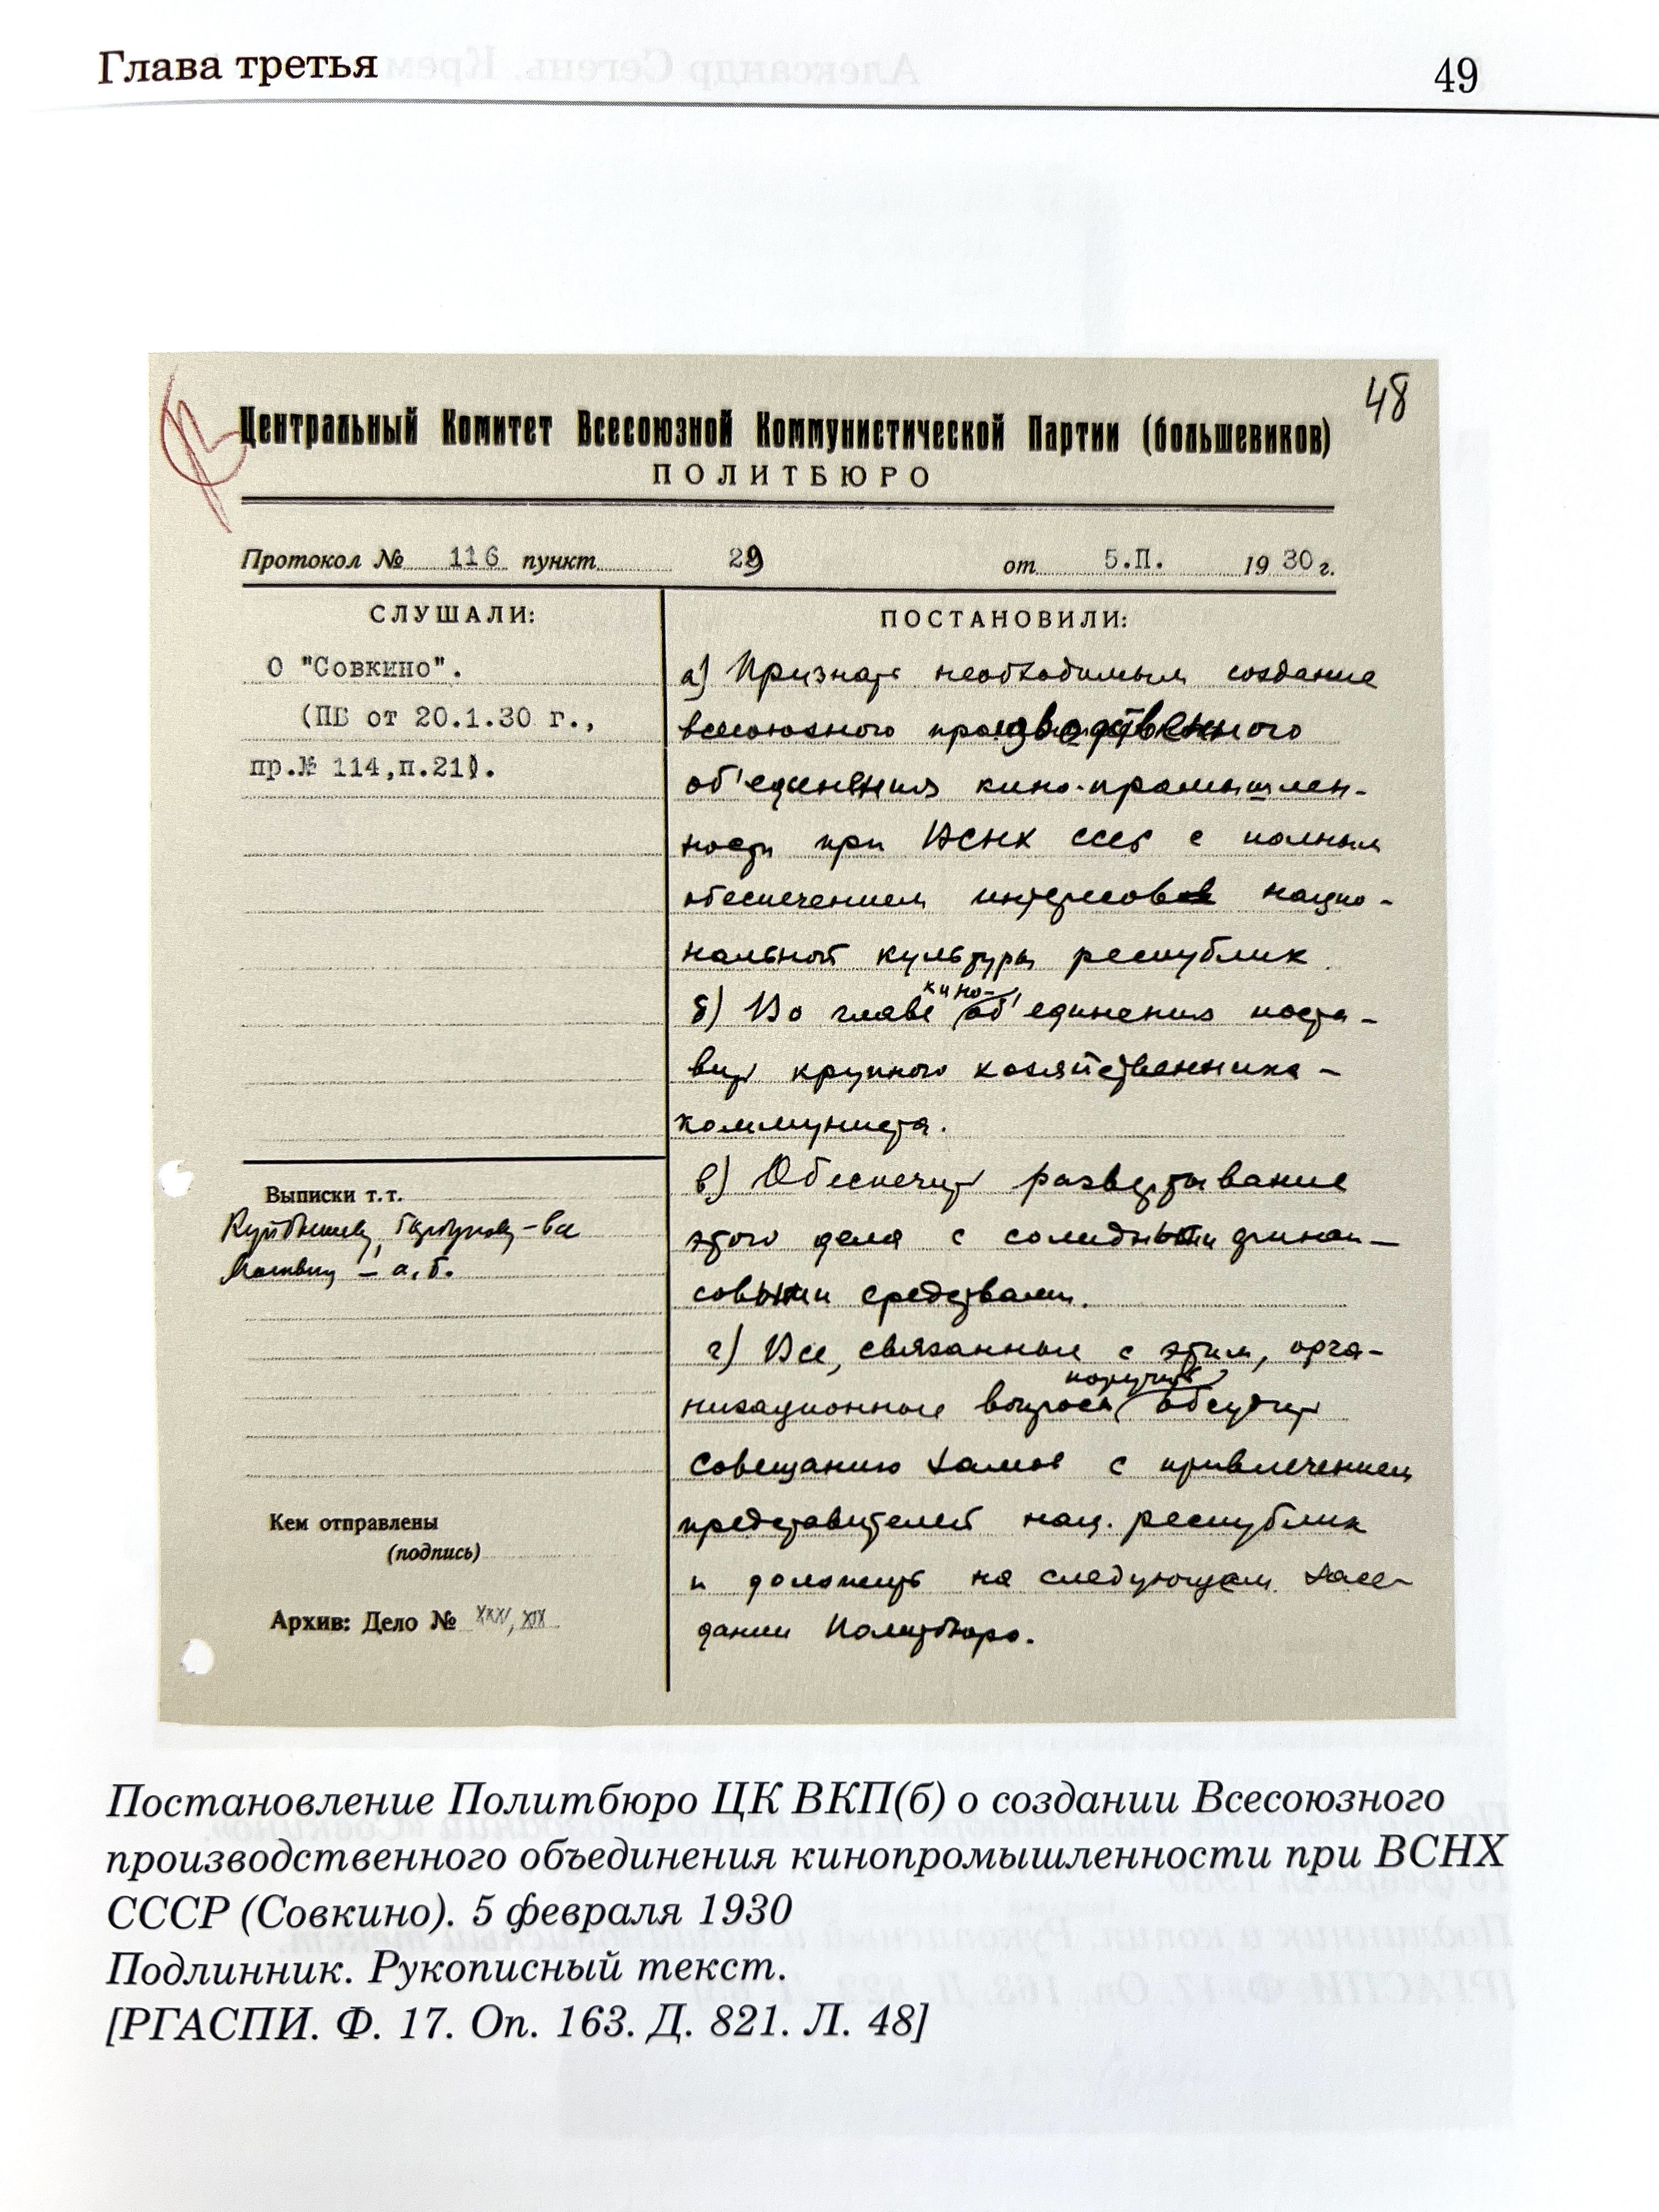 Глава третья
49
48
Центральный Комитет Всесоюзной Коммунистической Партии (большевиков)
ПОЛИТБЮРО
Протокол № 116 пункт 29 от 5.П. 1930 г.
СЛУШАЛИ:
О "Совкино".
(ПБ от 20.1.30 г.,
пр.№ 114,п.21).
Выписки т.т.
Куйбышеву, - все
Москвину - а, б.
Кем отправлены
(подпись)
Архив: Дело № XXV, XIX
ПОСТАНОВИЛИ:
а) Признать необходимым создание
всесоюзного производственного
об'единения кино-промышлен-
ности при ВСНХ СССР с полным
обеспечением интересов нацио-
нальной культуры республик
б) Во главе кино-об'единения поста-
вить крупного хозяйственника-
коммуниста.
в) Обеспечить развертывание
этого дела с солидными финан-
совыми средствами.
г) Все, связанные с этим, орга-
низационные вопросы поручить обсудить
совещанию замов с привлечением
представителей нац. республик
и доложить на следующем засе-
дании Политбюро.
Постановление Политбюро ЦК ВКП(б) о создании Всесоюзного
производственного объединения кинопромышленности при ВСНХ
СССР (Совкино). 5 февраля 1930
Подлинник. Рукописный текст.
[РГАСПИ. Ф. 17. Оп. 163. Д. 821. Л. 48]